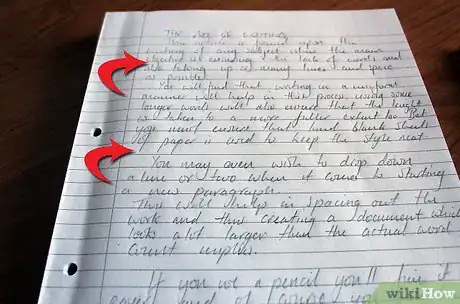 The Joy of writing
This article is based upon the
writing of any subject where the main
objective is extending the lack of words and
also taking up as many lines and space
as possible.
You will find that writing in a uniform
manner will help in this process using some
longer words will also ensure that the length
is taken to a more fuller extent too. But
you must ensure that lined blank sheets
of paper is used to keep the style neat
You may even wish to drop down
a line or two when it comes to starting
a new paragraph.
This will help in spacing out the
work and thus creating a document which
looks alot larger than the actual word
count implies.
If you use a pencil you'll find it
and of course
wikiHow